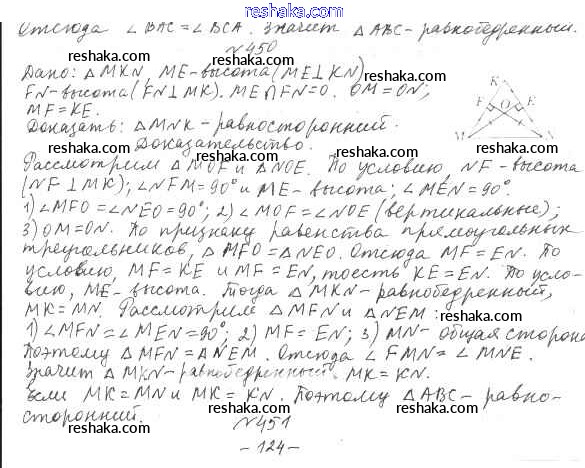 www.reshaka.com
Отсюда ∠BAC = ∠BCA. Значит △ABC - равнобедренный.
reshaka.com
№450
reshaka.com
Дано: △MKN, ME - высота (ME⊥KN)
FN - высота (FN⊥MK). ME∩FN = O. OM = ON;
MF = KE.
Доказать: △MNK - равносторонний.
Доказательство.
K
F O E
M N
Рассмотрим △MOF и △NOE. По условию, NF - высота
(NF⊥MK); ∠NFM = 90° и ME - высота; ∠MEN = 90°.
1) ∠MFO = ∠NEO = 90°; 2) ∠MOF = ∠NOE (вертикальные);
3) OM = ON. По признаку равенства прямоугольных
треугольников, △MFO = △NEO. Отсюда MF = EN. По
условию, MF = KE и MF = EN, тоесть KE = EN. По усло-
вию, ME - высота. Тогда △MKN - равнобедренный,
MK = MN. Рассмотрим △MFN и △NEM:
1) ∠MFN = ∠MEN = 90°; 2) MF = EN; 3) MN - общая сторона
Поэтому △MFN = △NEM. Отсюда ∠FMN = ∠MNE.
Значит △MKN - равнобедренный. MK = KN.
Если MK = MN и MK = KN. Поэтому △ABC - равно-
сторонний.
№451
- 124 -
reshaka.com